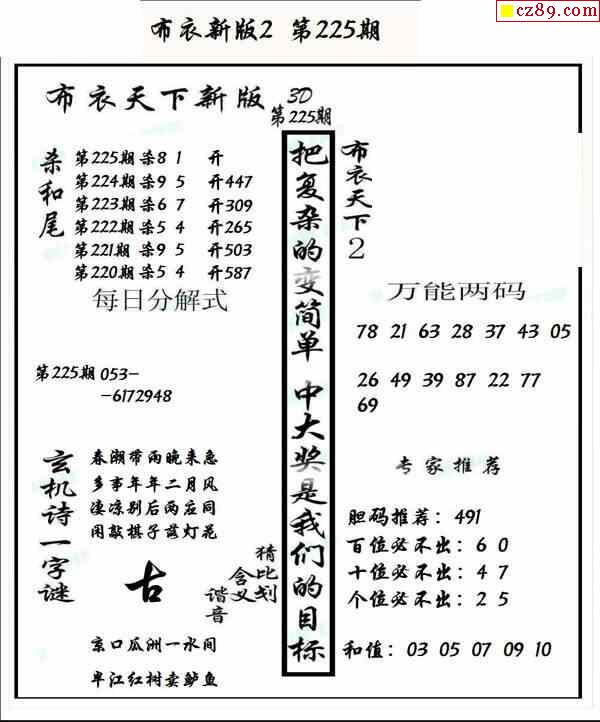 cz89.com
布衣新版2 第225期
布衣天下新版 3D
第225期
杀和尾
第225期杀8 1 开
第224期杀9 5 开447
第223期杀6 7 开309
第222期杀5 4 开265
第221期杀9 5 开503
第220期杀5 4 开587
每日分解式
第225期 053-
-6172948
玄机诗一字谜
春潮带雨晚来急
多事年年二月风
凄凉别后两应同
闲敲棋子落灯花
古
猜比划
含义
谐音
京口瓜洲一水间
半江红树卖鲈鱼
把复杂的变简单 中大奖是我们的目标
布衣天下2
万能两码
78 21 63 28 37 43 05
26 49 39 87 22 77
69
专家推荐
胆码推荐：491
百位必不出：6 0
十位必不出：4 7
个位必不出：2 5
和值：03 05 07 09 10